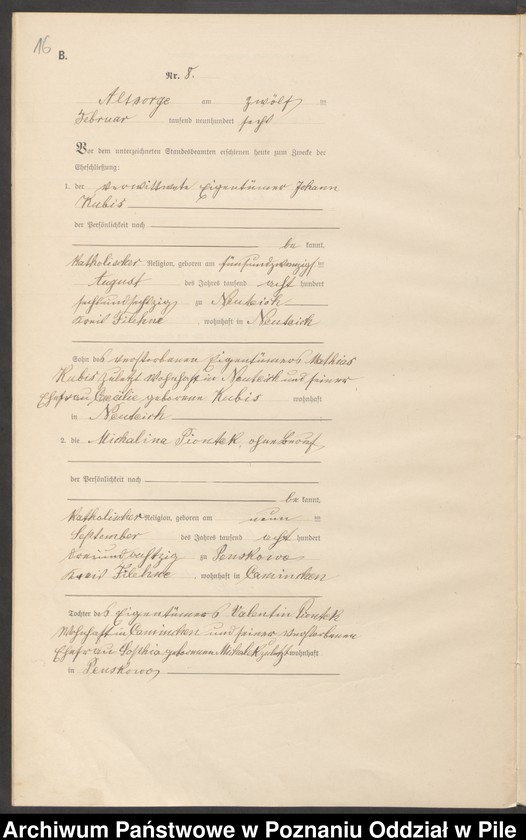 16
B.
Nr. 8.
Altsorge am zwölften
Februar tausend neunhundert sechs
Vor dem unterzeichneten Standesbeamten erschienen heute zum Zwecke der
Eheschließung:
1. der verwittwete Eigentümer Johann
Kubis
der Persönlichkeit nach
be kannt,
katholischer Religion, geboren am fünfundzwanzigsten
August des Jahres tausend acht hundert
sechsundsechzig zu Neuteich
Kreis Filehne, wohnhaft in Neuteich
Sohn des verstorbenen Eigentümers Mathias
Kubis zuletzt wohnhaft in Neuteich und seiner
Ehefrau Caecilie geborene Kubis wohnhaft
in Neuteich
2. die Michalina Piontek, ohne Beruf
der Persönlichkeit nach
be kannt,
katholischer Religion, geboren am neunten
September des Jahres tausend acht hundert
dreiundachtzig zu Penskowo
Kreis Filehne, wohnhaft in Caminchen
Tochter des Eigentümers Valentin Piontek
wohnhaft in Caminchen und seiner verstorbenen
Ehefrau Sophia geborenen zuletzt wohnhaft
in Penskowo
Archiwum Państwowe w Poznaniu Oddział w Pile